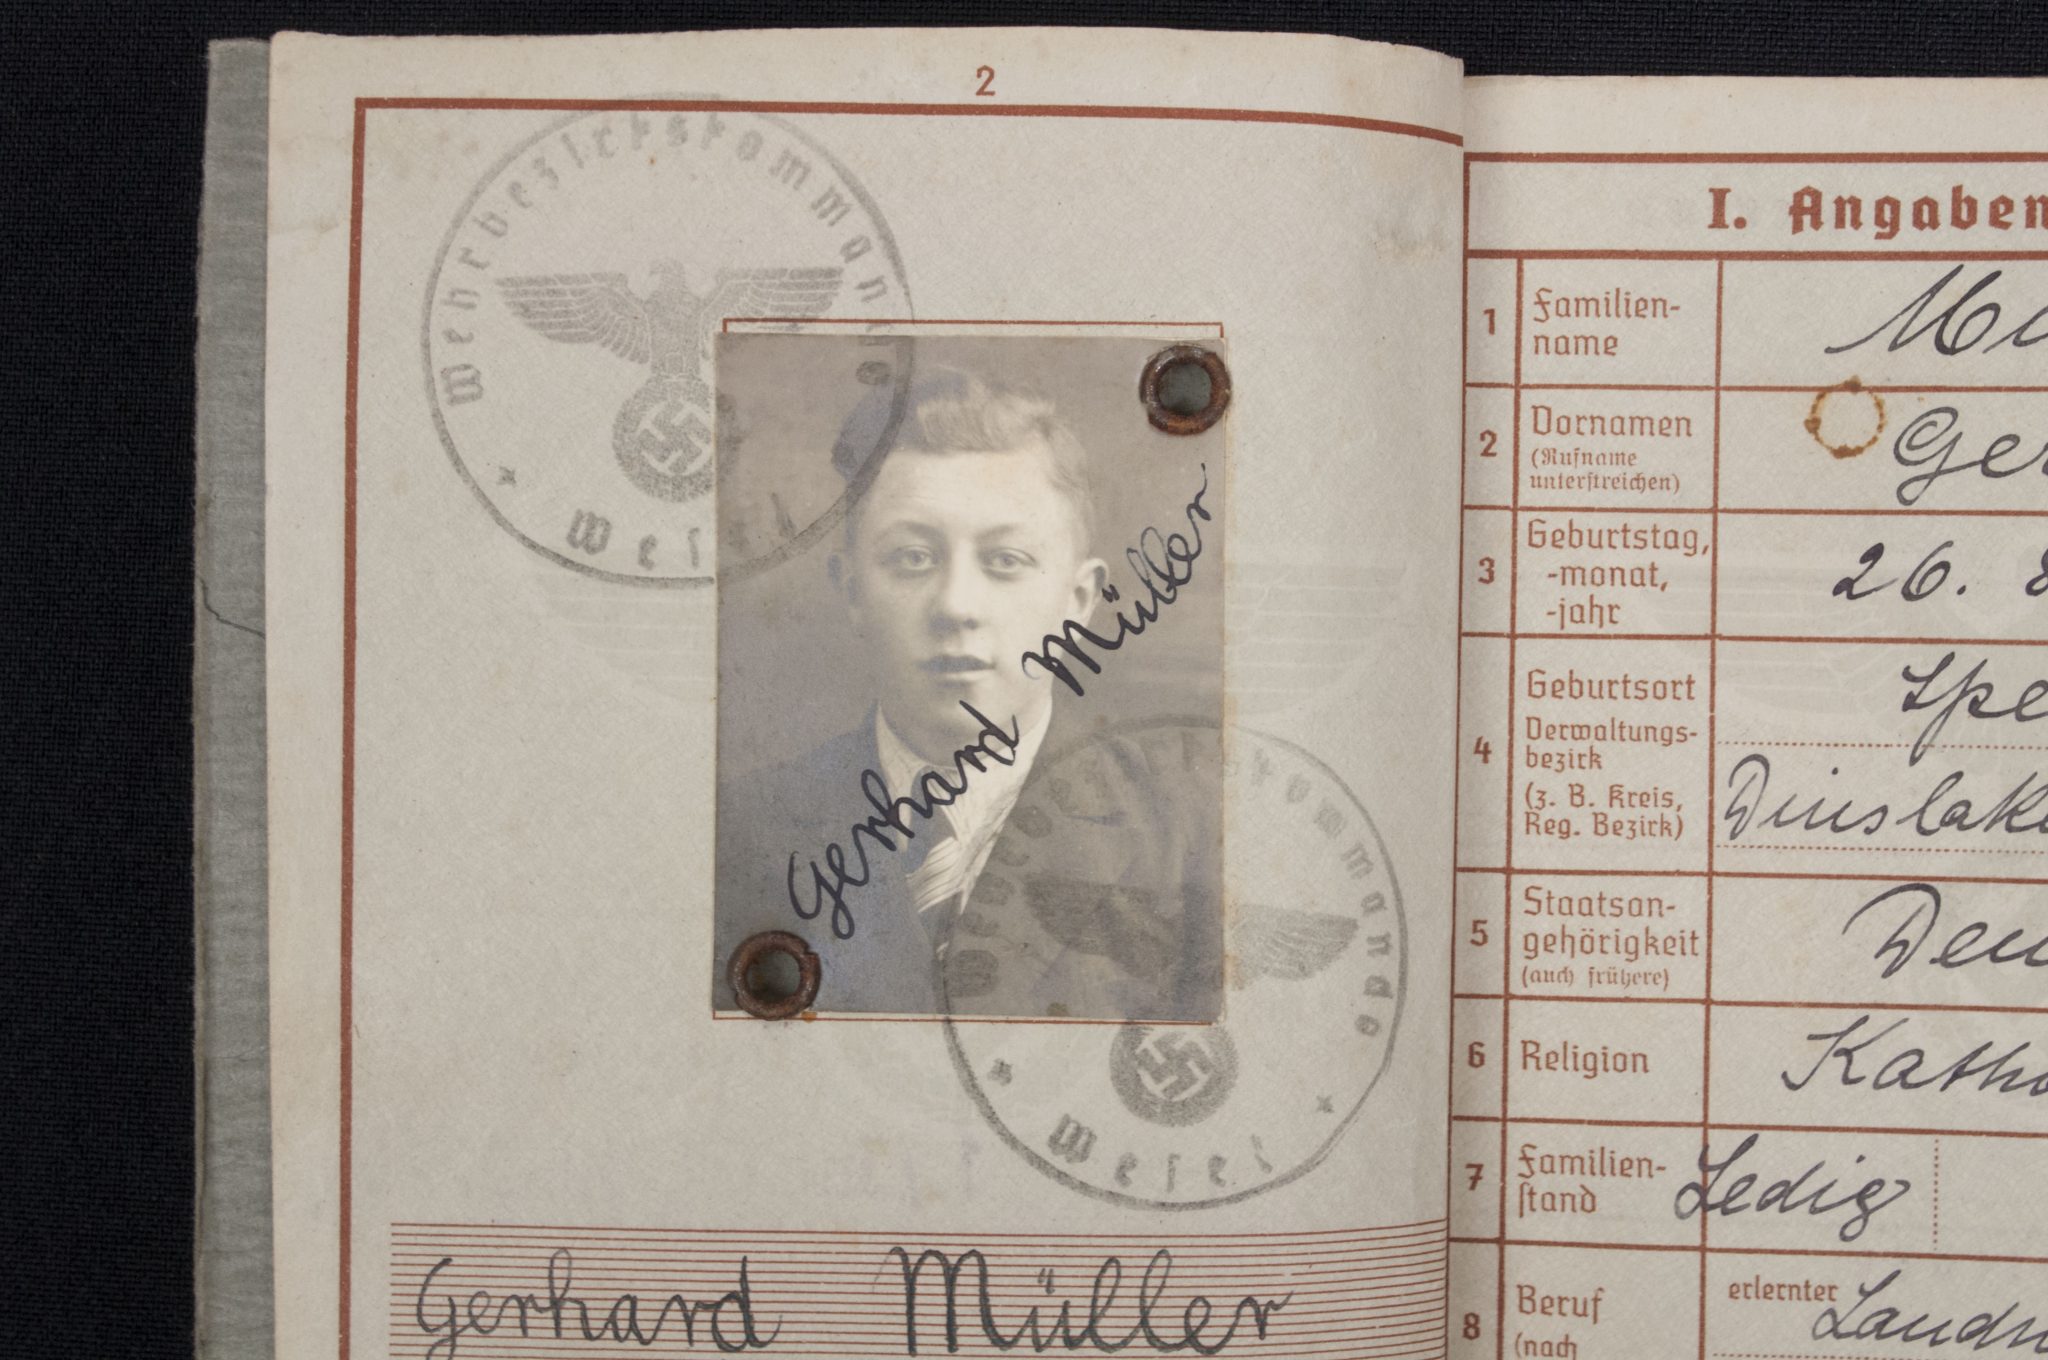 2
Wehrbezirkskommando
Wesel
Gerhard Müller
Wehrbezirkskommando
Wesel
Gerhard Müller
I. Angaben
1 Familien-
name
2 Vornamen
(Rufname
unterstreichen)
Ger
3 Geburtstag,
-monat,
-jahr
26. 8
4 Geburtsort
Verwaltungs-
bezirk
(z. B. Kreis,
Reg. Bezirk)
Spe
Dinslake
5 Staatsan-
gehörigkeit
(auch frühere)
Deu
6 Religion
Katho
7 Familien-
stand
Ledig
8 Beruf
(nach
erlernter
Landw